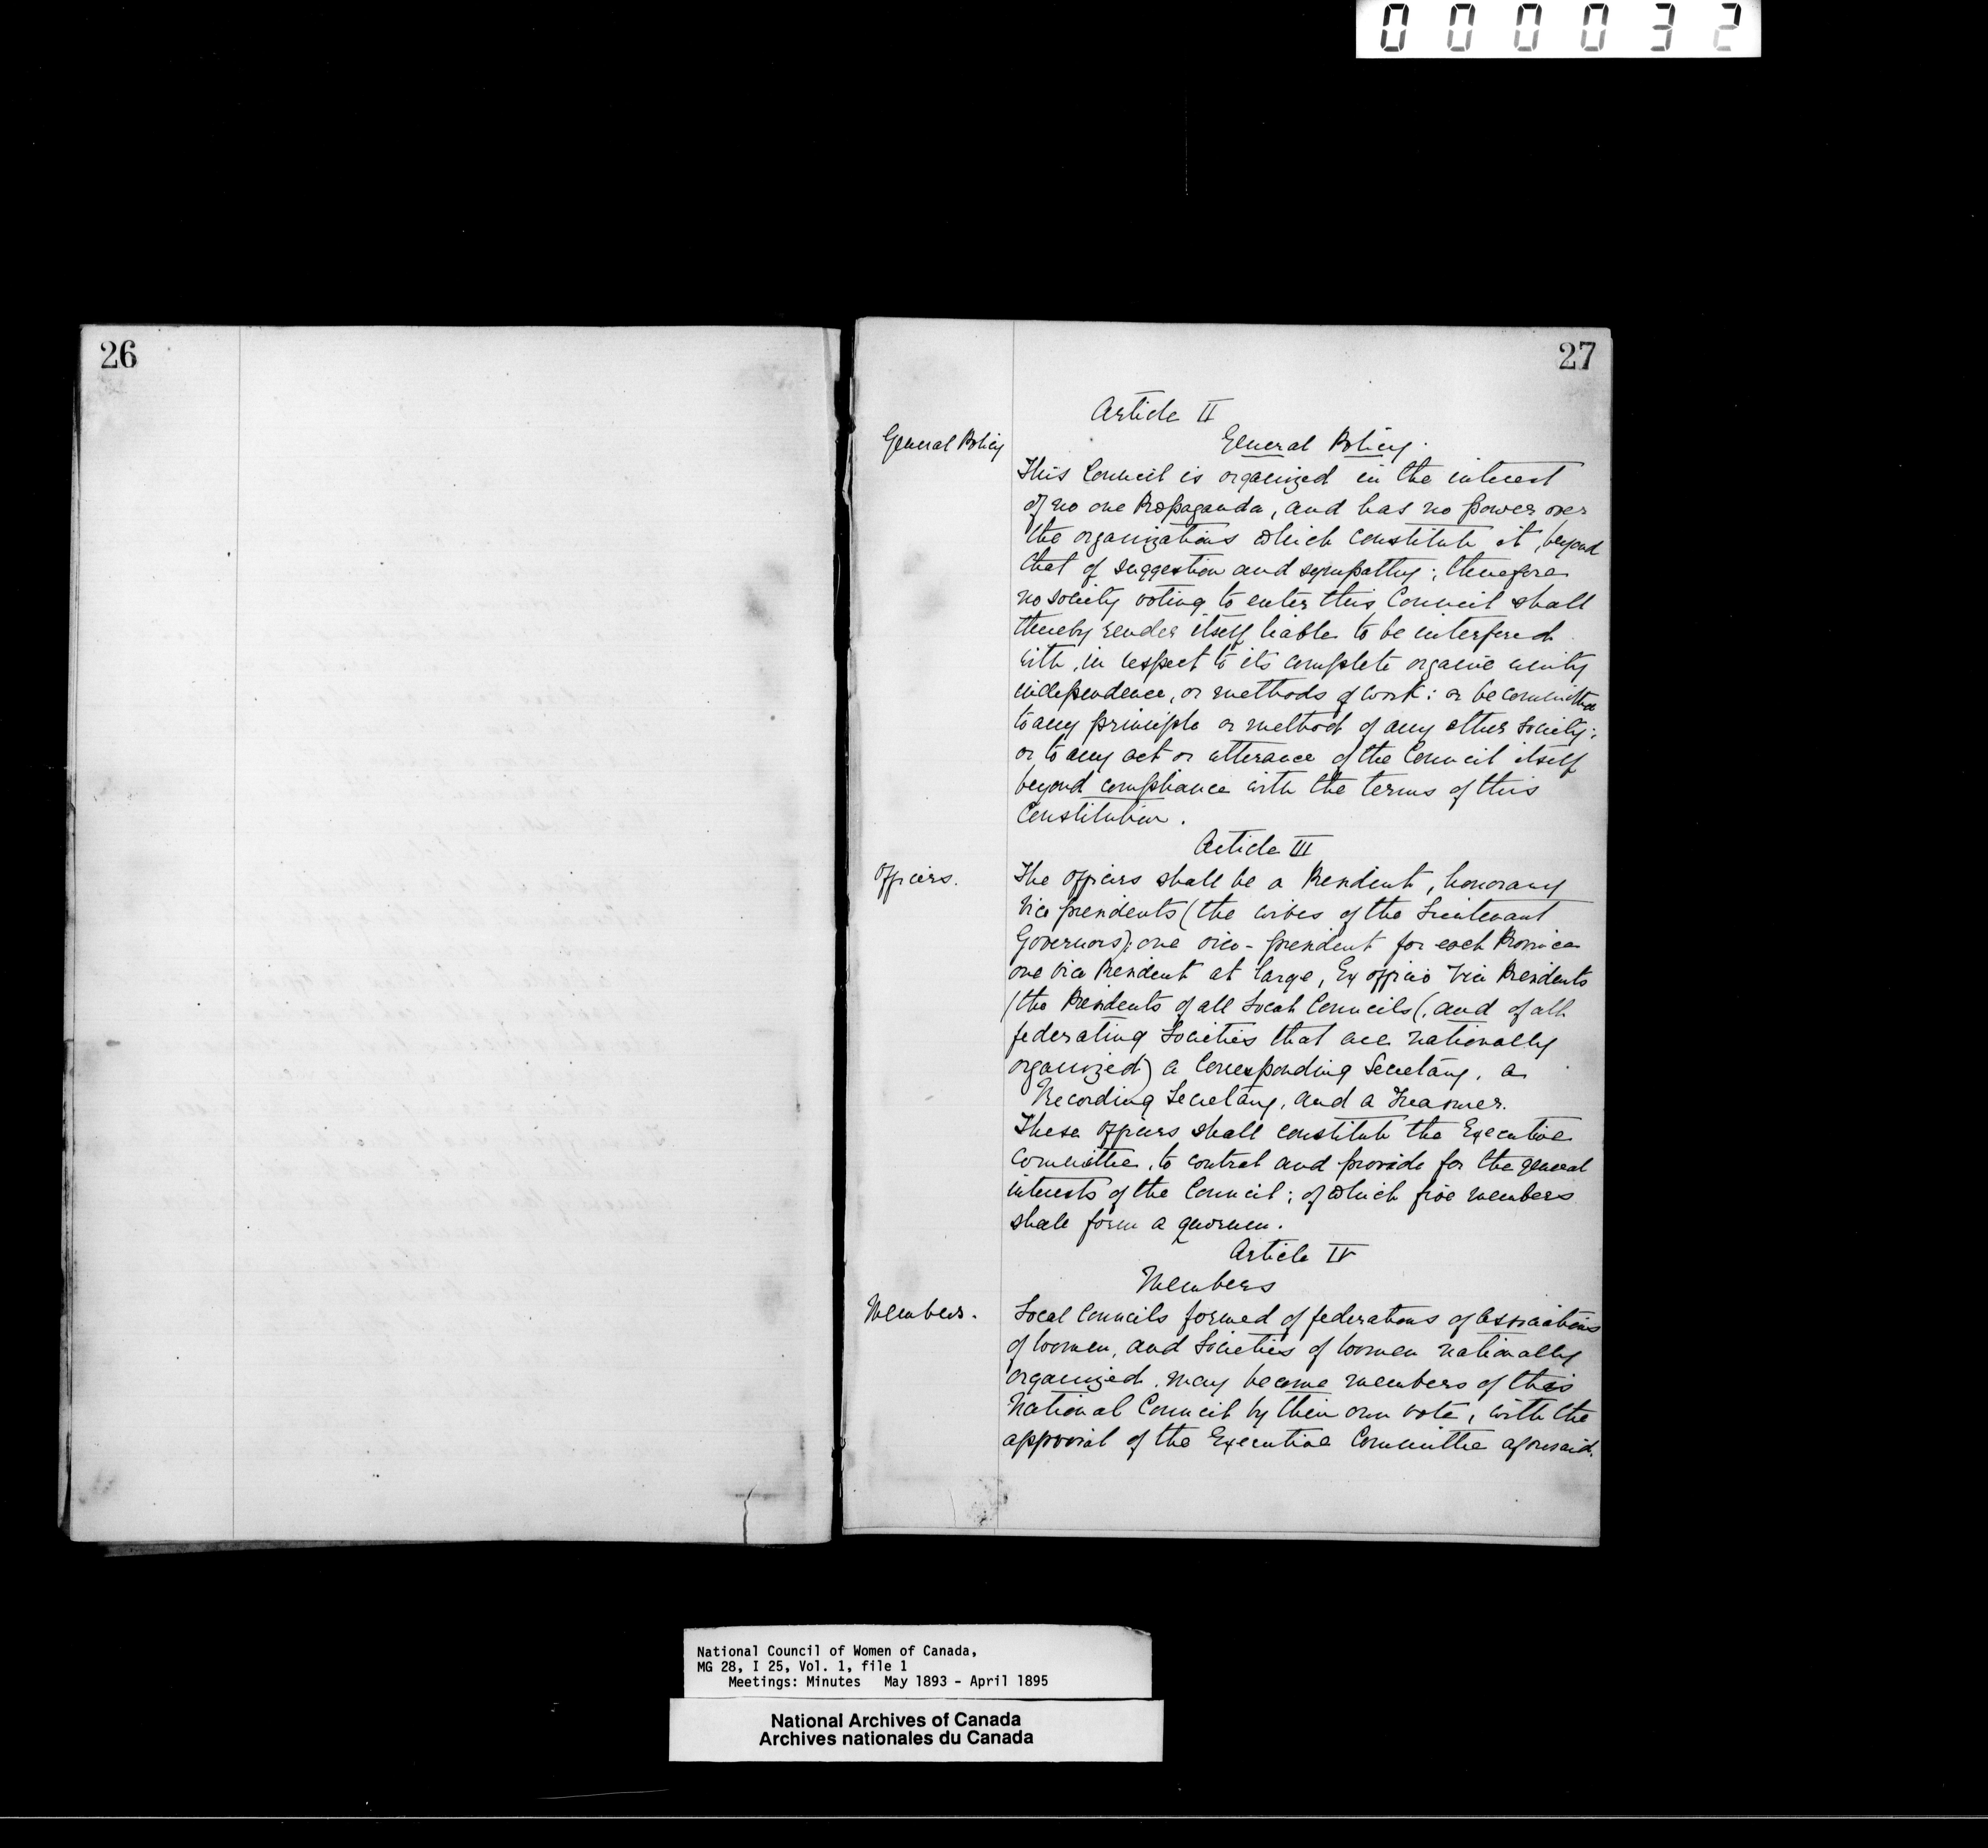 000032
26
27
Article II
General Policy
General Policy.
This Council is organized in the interest
of no one Propaganda, and has no power over
the organizations which constitute it, beyond
that of suggestion and sympathy; therefore
no society voting to enter this Council shall
thereby render itself liable to be interfered
with, in respect to its complete organic unity
independence, or methods of work: or be committed
to any principle or method of any other society;
or to any act or utterance of the Council itself
beyond compliance with the terms of this
Constitution.
Article III
Officers.
The officers shall be a President, honorary
Vice presidents (the wives of the Lieutenant
Governors); one vice-president for each Province
one Vice President at large, Ex officio Vice Presidents
(the Presidents of all Local Councils (, and of all
federating Societies that are nationally
organized) a Corresponding Secretary, a
Recording Secretary, and a Treasurer.
These officers shall constitute the Executive
Committee, to control and provide for the general
interests of the Council; of which five members
shall form a quorum.
Article IV
Members
Members.
Local Councils formed of federations of Associations
of women, and Societies of women nationally
organized. may become members of this
National Council by their own vote, with the
approval of the Executive Committee aforesaid.
National Council of Women of Canada,
MG 28, I 25, Vol. 1, file 1
Meetings: Minutes May 1893 - April 1895
National Archives of Canada
Archives nationales du Canada